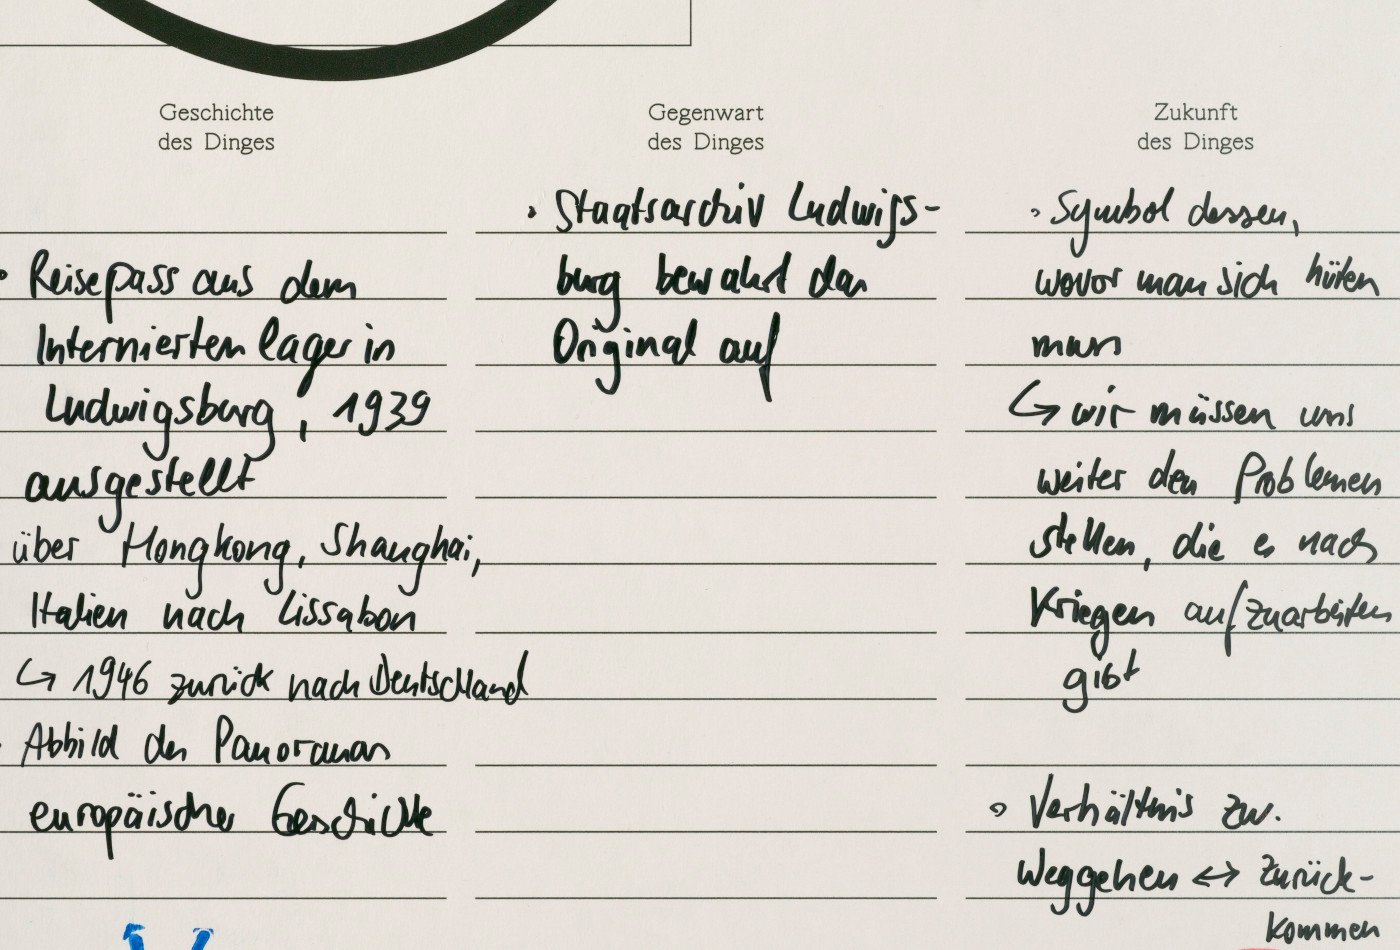 Geschichte
des Dinges
• Reisepass aus dem
Internierten lager in
Ludwigsburg, 1939
ausgestellt
über Hongkong, Shanghai,
Italien nach Lissabon
↪ 1946 zurück nach Deutschland
• Abbild des Panoramas
europäischer Geschichte
Gegenwart
des Dinges
• Staatsarchiv Ludwigs-
burg bewahrt das
Original auf
Zukunft
des Dinges
• Symbol dessen,
wovor man sich hüten
muss
↪ wir müssen uns
weiter den Problemen
stellen, die es nach
Kriegen aufzuarbeiten
gibt
• Verhältnis zw.
Weggehen ↔ Zurück-
kommen